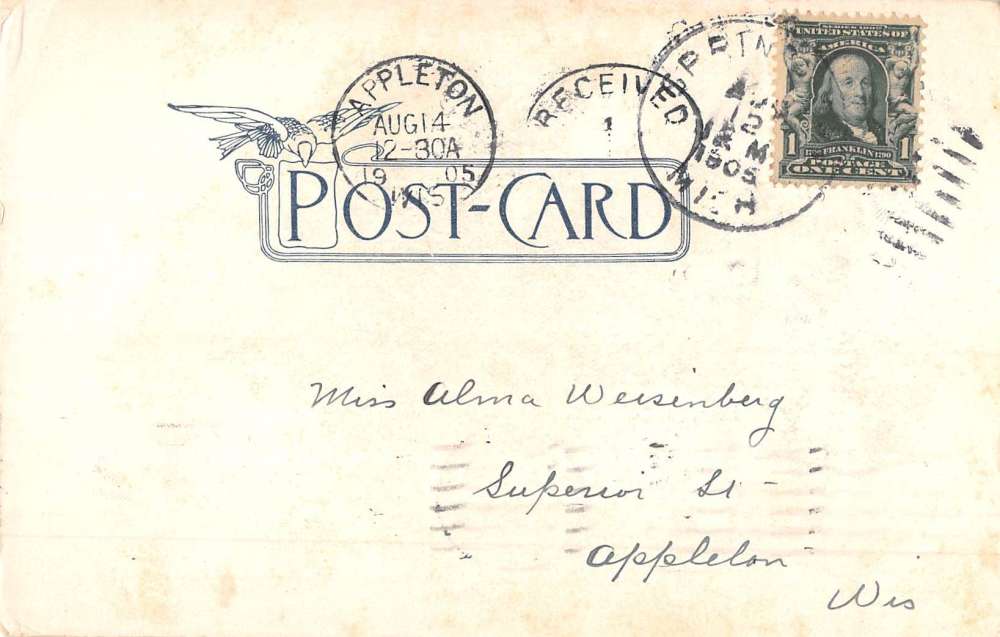 APPLETON
AUG 14
12-30A
19 05
WIS
RECEIVED
1
MICH
1905
SERIES 1902
UNITED STATES OF
AMERICA
1 1706 FRANKLIN 1790 1
POSTAGE
ONE CENT
POST-CARD
Miss Alma Weisenberg
Superior St -
Appleton
Wis